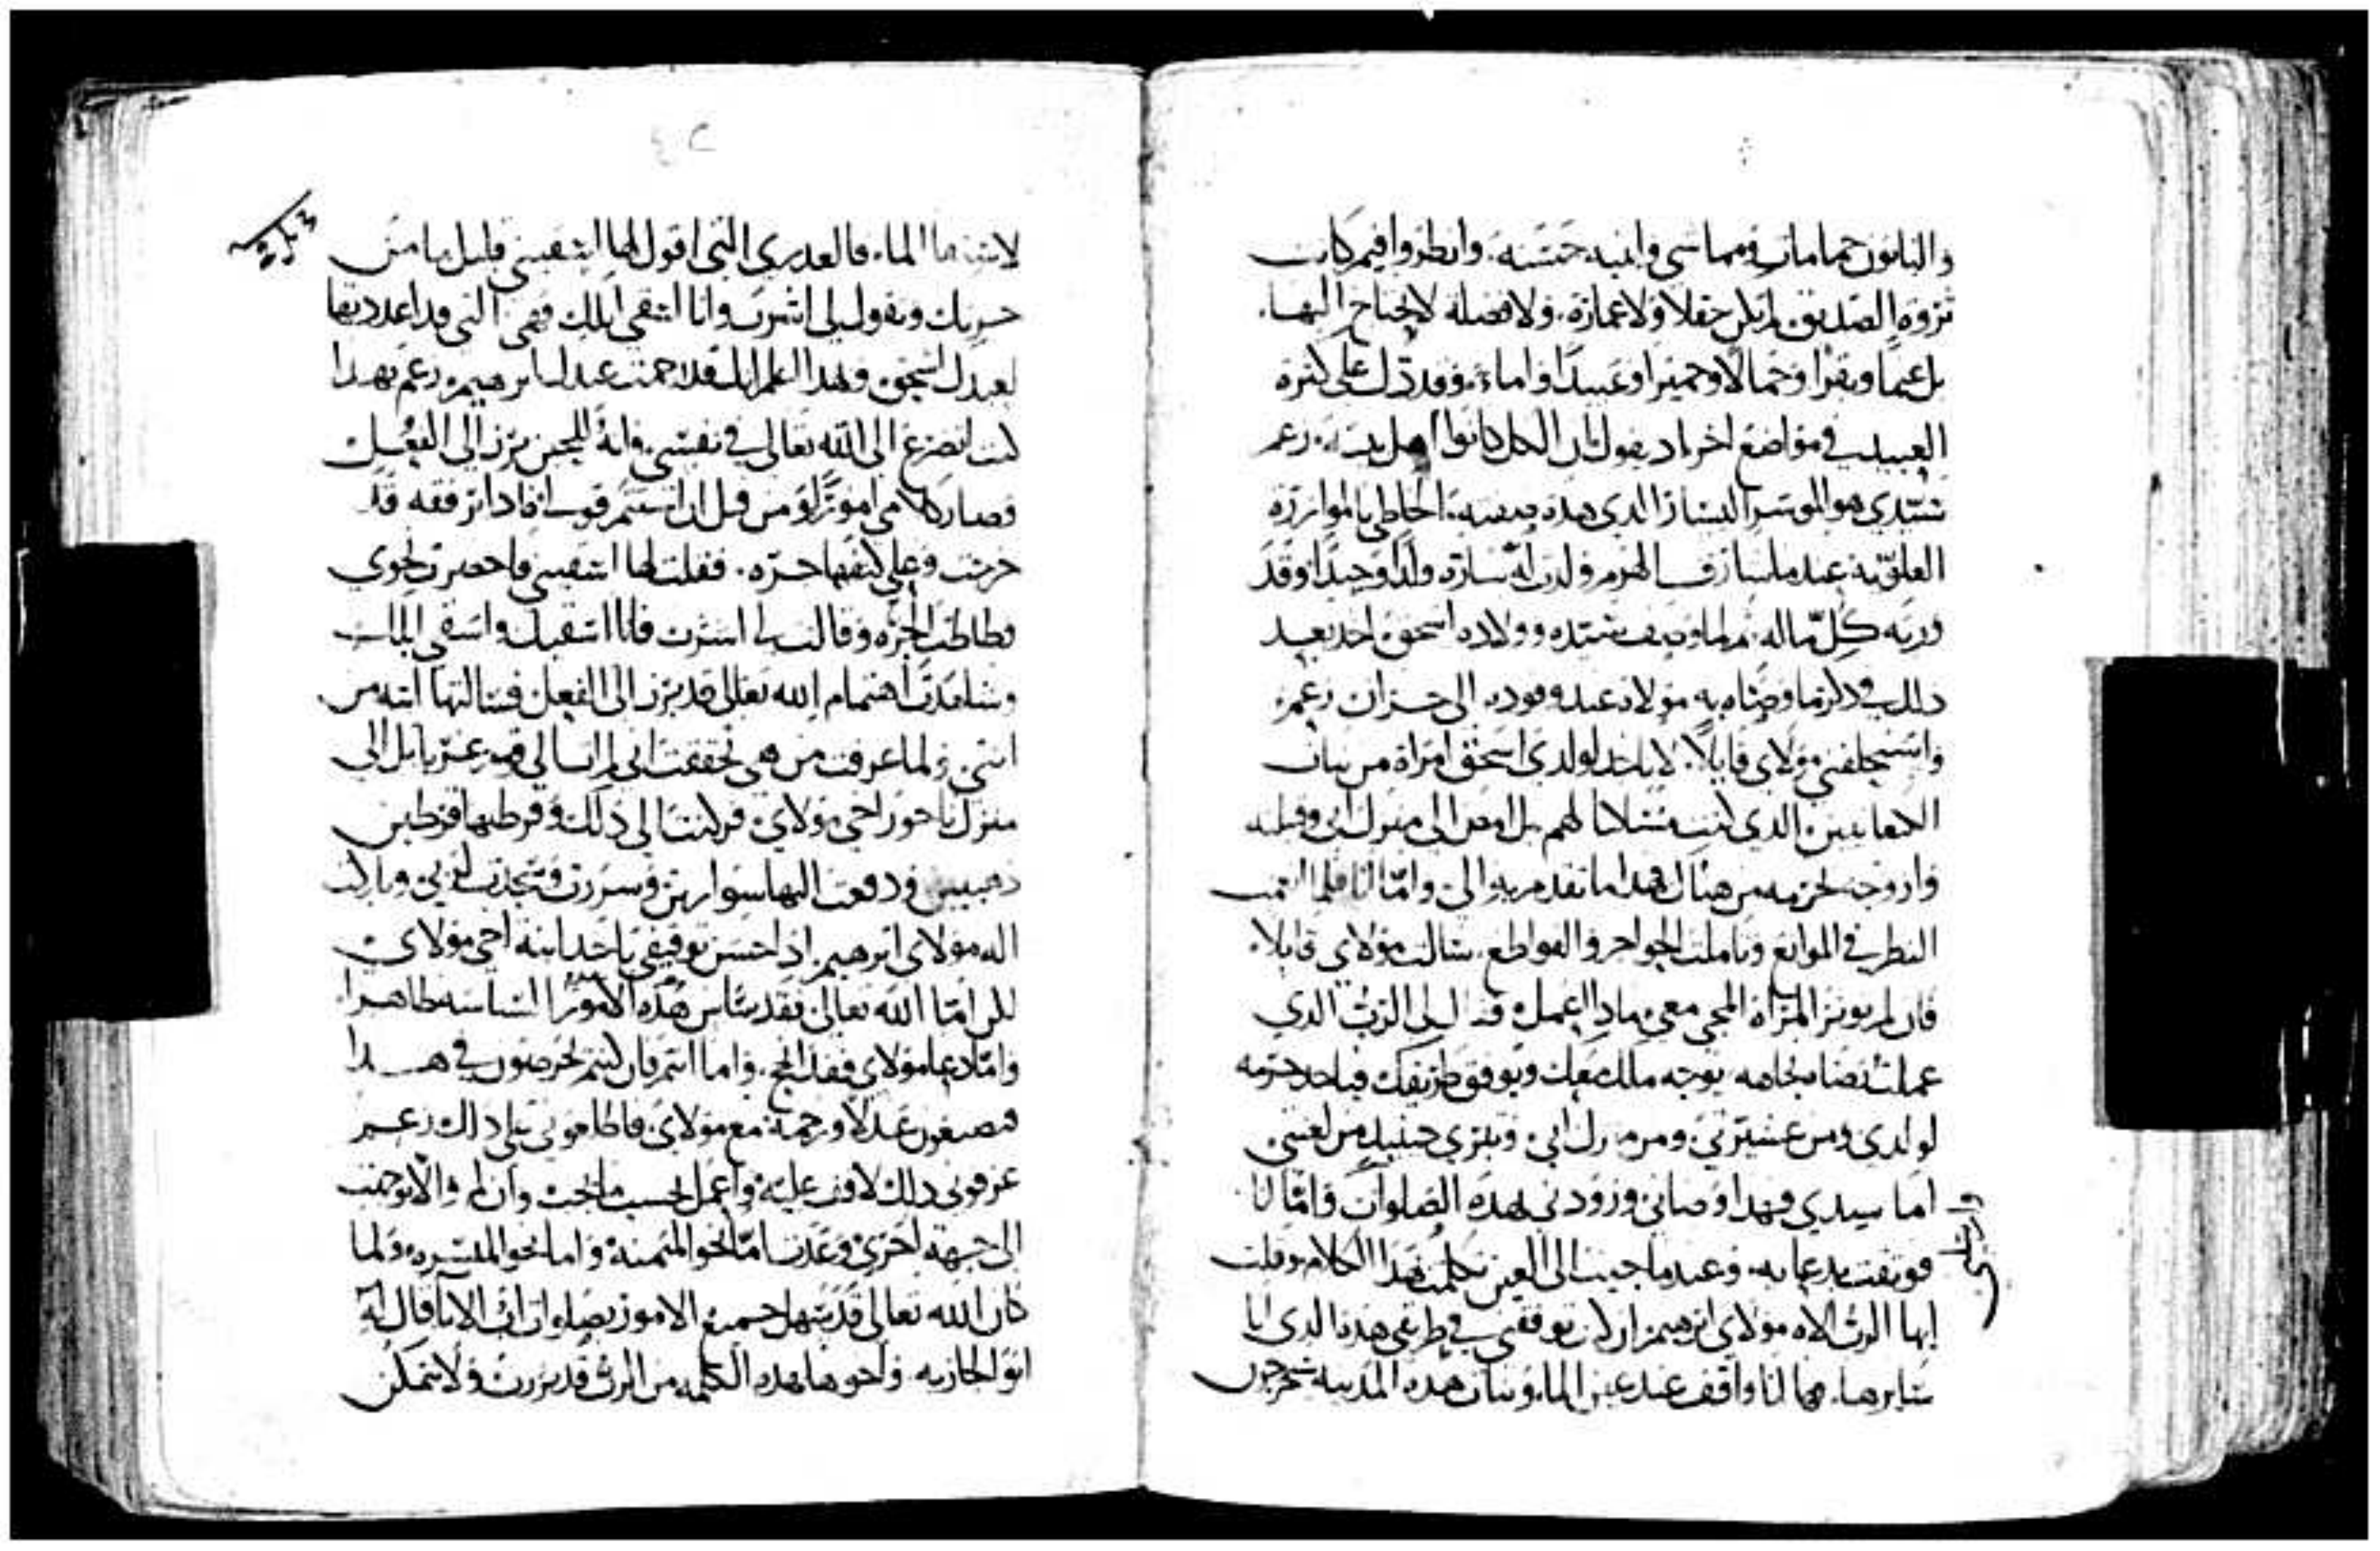 والبانون حمامات ومماشي وابنيه حسنه. وانظروا فيم كانت
ثروة الصديق لم تكن حقلا ولا عمارة. ولا فضله لا يحتاج اليها.
بل غنما وبقرا وجمالا وحميرا وعبيدا واماء. وقد دل على كثرة
العبيد في مواضع اخر اذ يقول بان الكل كانوا اهل بيته. زعم
سيدي هو الموسر اليسار الذي هذه صفته. الحاظي بالموازرة
العلويه عند ما شارف الهرم ولدت له ساره ولدا وحيدا وقد
ورثه كل ماله. ثم لما وصف سيده وولاده اسحق اخذ بعد
ذلك في ذكر ما وصاه به مولاه عند وفوده الى حران زعم.
واستحلفني مولاي قايلا. لا تاخذ لولدي اسحق امراة من بنات
الكنعانيين الذي كنت ساكنا لهم بل امض الى منزل ابي وقبيلته
وازوجه لحرمه من هناك فهذا ما تقدم به الي. واما انا فلما انعمت
النظر في الموانع وتاملت الحواجز والقواطع. سالت مولاي قايلا.
فان لم توثر المراة المجي معي ماذا اعمل. فقال لي الرب الذي
عملت بمرضاته تجاهه يوجه ملاكه معك ويوفق طريقك فتاخذ حرمه
لولدي ومن عشيرتي ومن منزل ابي. وتبري حينيذ من لعنتي
اما سيدي فبهذا وصاني وزودني لهذه الصلوات واما انا
فوثقت بدعايه. وعند ما جيت الى العين تكلمت بهذا الكلام وقلت
ايها الرب الاه مولاي ابرهيم ان كنت توفقني في طريقي هذه الذي انا
سايرها. فها انا واقف عند عين الماء وبنات هذه المدينه يخرجون
لاستقا الماء. فالعدري التي اقول لها اسقيني قليل ما من
جرتك وتقول لي اشرب وانا اسقي ابلك فهي التي قد اعددتها
لعبدك اسحق وبهذا اعلم انك قد رحمت عبدك ابرهيم. زعم بهذا
كنت اتضرع الى الله تعالى في نفسي. وانه للحين برز الى الفعل
وصار كلامي اموراً ومن قبل ان استتم قولي فاذا رفقه قد
خرجت وعلى كتفها جره. فقلت لها اسقيني فاحضرت نحوي
وطاطت الجره وقالت لي اشرب فانا اسقيك واسقي ابلك
وشاهدت اهتمام الله تعالى قد برز الى الفعل فسالتها ابنة من
انتي. ولما عرفت من هي تحققت اني لم انسال في قوم غربا بل الى
منزل ناحور اخي مولاي. فركنت الى ذلك وقرطتها قرطين
ذهبيين ودفعت اليها سوارين وسررت وسجدت لربي وباركت
اله مولاي ابرهيم. اذ احسن توفيقي باخذ ابنة اخي مولاي
لكن اما الله تعالى فقد ساس هذه الامور السياسه ظاهرا.
واما دعا مولاي فقد انجح. واما انتم فان كنتم تحرصون في هذا
فتصنعون عدلا ورحمة مع مولاي فاطلعوني على ذلك زعم
عرفوني ذلك لاقف عليه واعمل بحسب ما يجب وان لم والا توجهت
الى جهة اخرى وعدلت اما نحو الميمنة واما نحو الميسره ولما
كان الله تعالى قد سهل جميع الامور بصلوات اب الابا قال له
ابو الجاريه. واخوها هذه الكلمه من الرب قد برزت ولا نتمكن